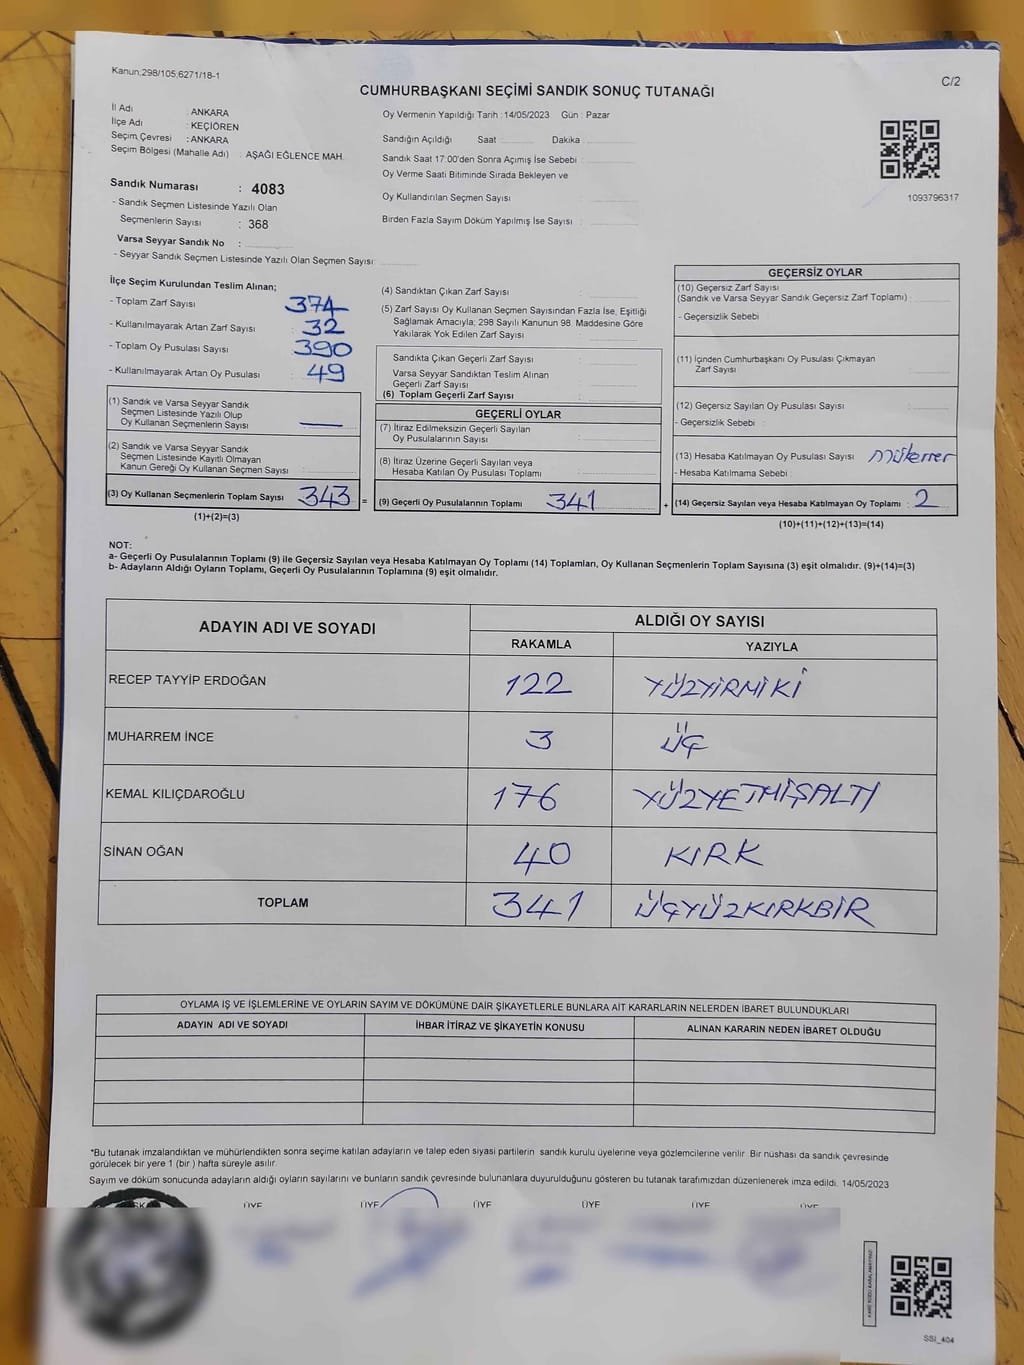 Kanun:298/105,6271/18-1
C/2
CUMHURBAŞKANI SEÇİMİ SANDIK SONUÇ TUTANAĞI
İl Adı : ANKARA
İlçe Adı : KEÇİÖREN
Seçim Çevresi : ANKARA
Seçim Bölgesi (Mahalle Adı) : AŞAĞI EĞLENCE MAH.
Sandık Numarası : 4083
- Sandık Seçmen Listesinde Yazılı Olan
Seçmenlerin Sayısı : 368
Varsa Seyyar Sandık No :
- Seyyar Sandık Seçmen Listesinde Yazılı Olan Seçmen Sayısı:
Oy Vermenin Yapıldığı Tarih : 14/05/2023 Gün : Pazar
Sandığın Açıldığı Saat Dakika :
Sandık Saat 17:00'den Sonra Açımış İse Sebebi :
Oy Verme Saati Bitiminde Sırada Bekleyen ve
Oy Kullandırılan Seçmen Sayısı :
Birden Fazla Sayım Döküm Yapılmış İse Sayısı :
1093796317
İlçe Seçim Kurulundan Teslim Alınan;
- Toplam Zarf Sayısı : 374
- Kullanılmayarak Artan Zarf Sayısı : 32
- Toplam Oy Pusulası Sayısı : 390
- Kullanılmayarak Artan Oy Pusulası : 49
(1) Sandık ve Varsa Seyyar Sandık
Seçmen Listesinde Yazılı Olup
Oy Kullanan Seçmenlerin Sayısı : —
(2) Sandık ve Varsa Seyyar Sandık
Seçmen Listesinde Kayıtlı Olmayan
Kanun Gereği Oy Kullanan Seçmen Sayısı :
(3) Oy Kullanan Seçmenlerin Toplam Sayısı : 343 =
(1)+(2)=(3)
(4) Sandıktan Çıkan Zarf Sayısı :
(5) Zarf Sayısı Oy Kullanan Seçmen Sayısından Fazla İse, Eşitliği
Sağlamak Amacıyla; 298 Sayılı Kanunun 98. Maddesine Göre
Yakılarak Yok Edilen Zarf Sayısı :
Sandıkta Çıkan Geçerli Zarf Sayısı :
Varsa Seyyar Sandıktan Teslim Alınan
Geçerli Zarf Sayısı :
(6) Toplam Geçerli Zarf Sayısı :
GEÇERLİ OYLAR
(7) İtiraz Edilmeksizin Geçerli Sayılan
Oy Pusulalarının Sayısı :
(8) İtiraz Üzerine Geçerli Sayılan veya
Hesaba Katılan Oy Pusulası Toplamı :
(9) Geçerli Oy Pusulalarının Toplamı : 341 +
GEÇERSİZ OYLAR
(10) Geçersiz Zarf Sayısı
(Sandık ve Varsa Seyyar Sandık Geçersiz Zarf Toplamı) :
- Geçersizlik Sebebi :
(11) İçinden Cumhurbaşkanı Oy Pusulası Çıkmayan
Zarf Sayısı :
(12) Geçersiz Sayılan Oy Pusulası Sayısı :
- Geçersizlik Sebebi :
(13) Hesaba Katılmayan Oy Pusulası Sayısı : mükerrer
- Hesaba Katılmama Sebebi :
(14) Geçersiz Sayılan veya Hesaba Katılmayan Oy Toplamı : 2
(10)+(11)+(12)+(13)=(14)
NOT:
a- Geçerli Oy Pusulalarının Toplamı (9) ile Geçersiz Sayılan veya Hesaba Katılmayan Oy Toplamı (14) Toplamları, Oy Kullanan Seçmenlerin Toplam Sayısına (3) eşit olmalıdır. (9)+(14)=(3)
b- Adayların Aldığı Oyların Toplamı, Geçerli Oy Pusulalarının Toplamına (9) eşit olmalıdır.
ADAYIN ADI VE SOYADI ALDIĞI OY SAYISI
RAKAMLA YAZIYLA
RECEP TAYYİP ERDOĞAN 122 YÜZYİRMİKİ
MUHARREM İNCE 3 ÜÇ
KEMAL KILIÇDAROĞLU 176 YÜZYETMİŞALTI
SİNAN OĞAN 40 KIRK
TOPLAM 341 ÜÇYÜZKIRKBİR
OYLAMA İŞ VE İŞLEMLERİNE VE OYLARIN SAYIM VE DÖKÜMÜNE DAİR ŞİKAYETLERLE BUNLARA AİT KARARLARIN NELERDEN İBARET BULUNDUKLARI
ADAYIN ADI VE SOYADI İHBAR İTİRAZ VE ŞİKAYETİN KONUSU ALINAN KARARIN NEDEN İBARET OLDUĞU
*Bu tutanak imzalandıktan ve mühürlendikten sonra seçime katılan adayların ve talep eden siyasi partilerin sandık kurulu üyelerine veya gözlemcilerine verilir. Bir nüshası da sandık çevresinde
görülecek bir yere 1 (bir ) hafta süreyle asılır.
Sayım ve döküm sonucunda adayların aldığı oyların sayılarını ve bunların sandık çevresinde bulunanlara duyurulduğunu gösteren bu tutanak tarafımızdan düzenlenerek imza edildi. 14/05/2023
ÜYE ÜYE ÜYE ÜYE ÜYE ÜYE
SSI_404